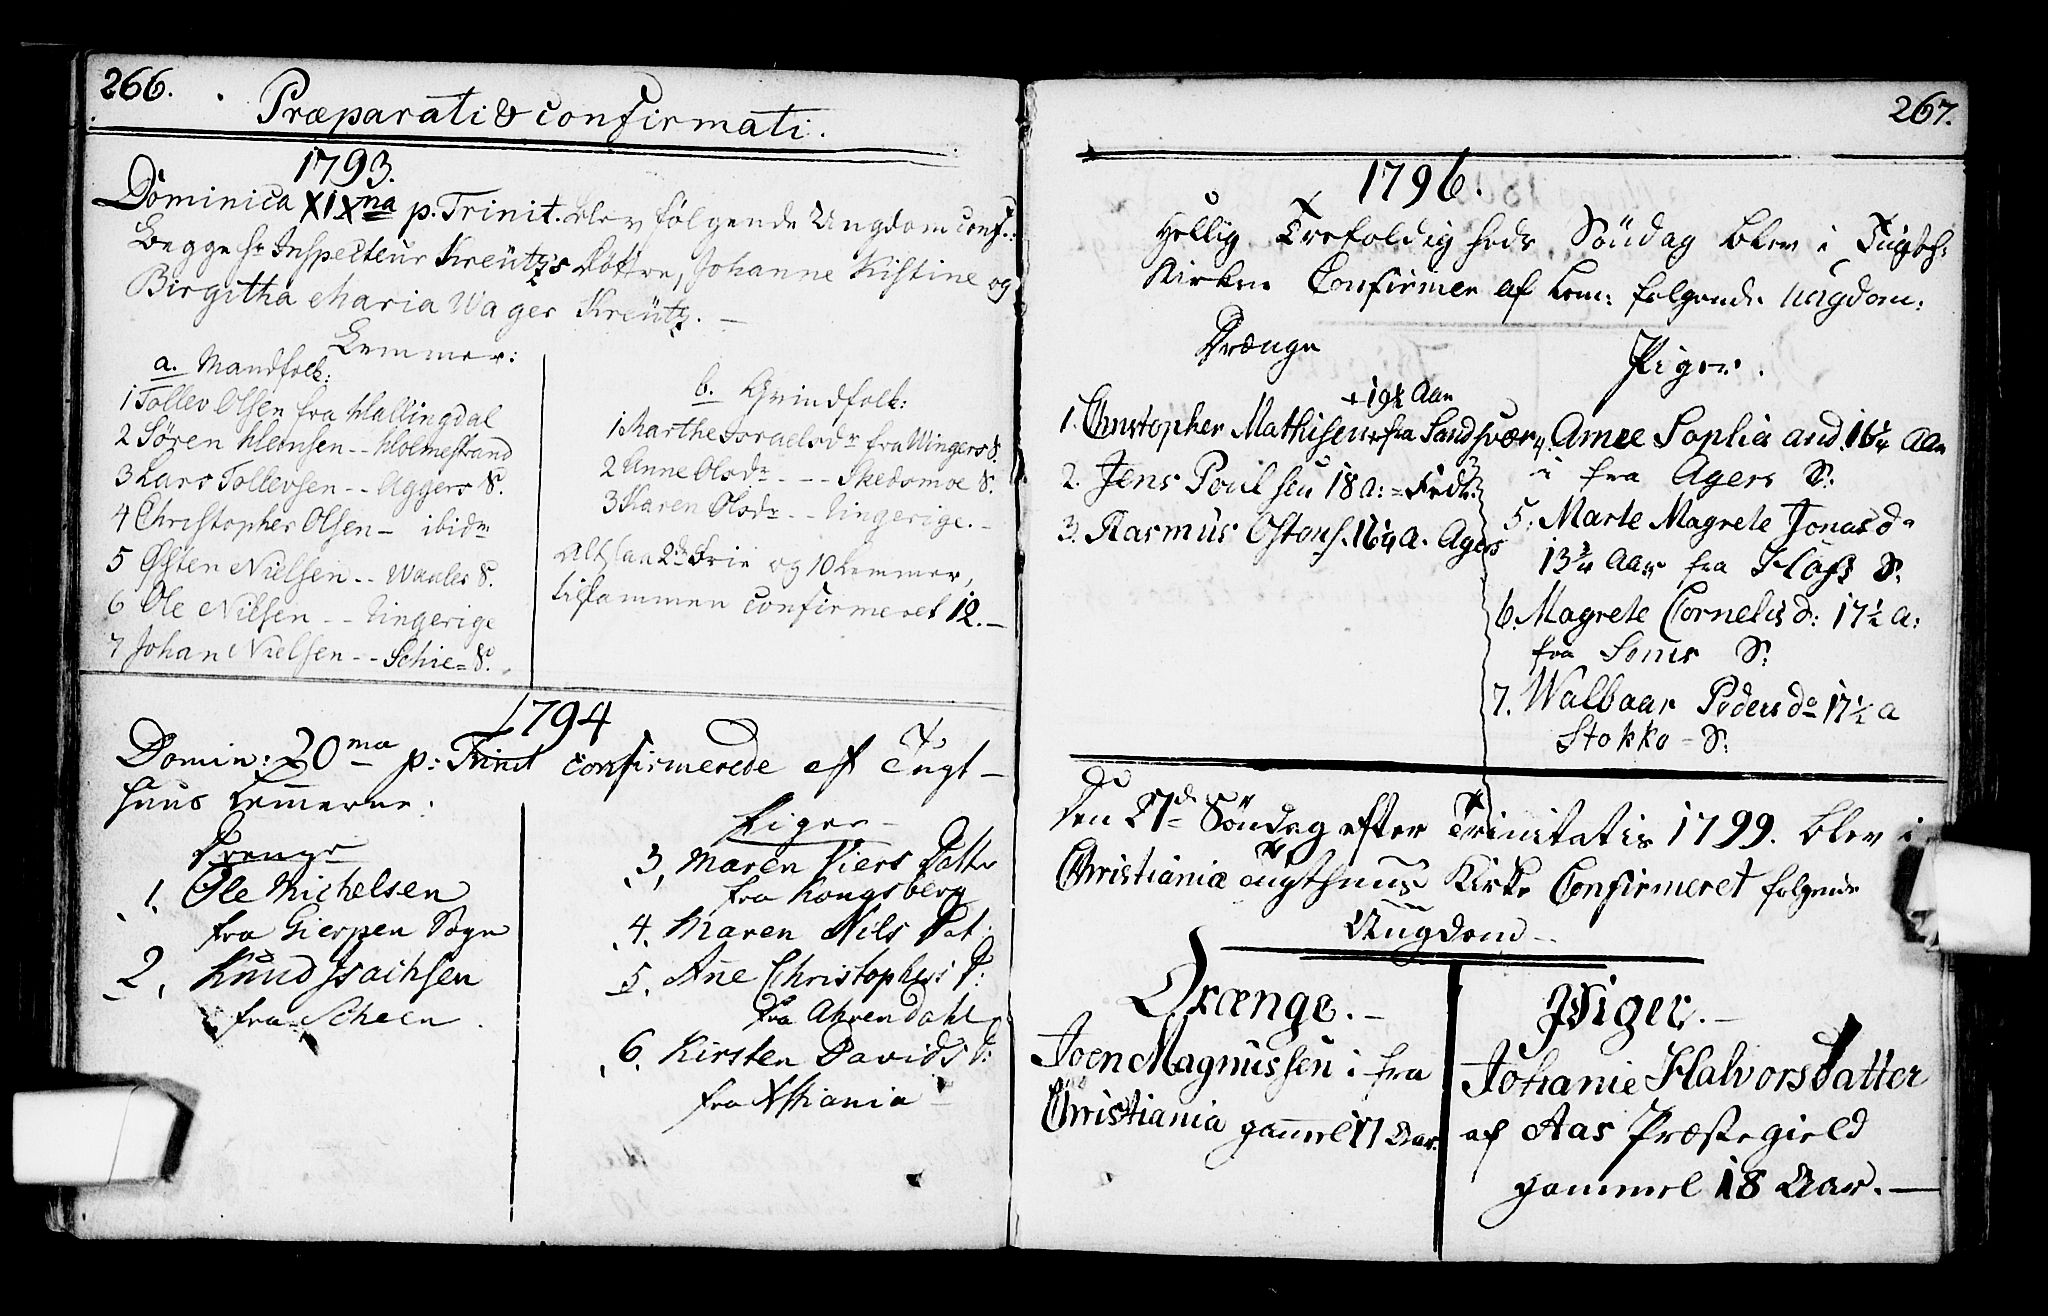 266.
Præparati & confirmati.
1793.
Dominica XIXna p. Trinit. blev følgende Ungdom conf.:
Begge Hr Inspecteur Kreütz's Døttre, Johanne Kistine og
Birgitha Maria Wager Kreütz. —
Lemmer:
a. Mandfolk:
1 Tollev Olsen fra Hallingdal
2 Sören Hemsen -- Holmestrand
3 Lars Tollevsen -- Aggers S.
4 Christopher Olsen — ibidm
5 Østen Nielsen -- Waaler S.
6 Ole Nilsen -- Ringerige
7 Johan Nielsen -- Schie-S.
b. Qvindfolk:
1 Marthe Israelsdr fra Wingers S.
2 Anne Olsdr - - - Skedsmoe S.
3 Karen Olsdr - - Ringerige. -
Altsaa 2de Frie og 10 Lemmer,
tilsammen confirmeret 12. —
1794
Domin: 20ma p: Trinit confirmerede af Tugt-
huus Lemerne:
Drenge
1, Ole Michelsen
fra Gierpen Sogn
2, Knud Isachsen
fra Scheen.
Piger
3, Maren Piers Datter
fra Kongsberg
4. Maren Nils Dat.
5. Ane Christophers D:
fra Ahrendahl
6. Kirsten Davids D:
fra Xstiania
267.
1796.
Hellig Trefoldigheds Söndag blev i Tugth:
Kirken Confirmer af Lem: følgende Ungdom:
Drænge
+19½ Aar
1. Christopher Mathisen fra Sandsvær
2. Jens Poulsen 18 a: = Fred:
3. Rasmus Ostens. 16¼ a. Agers
Piger.
4. Anne Sophia And. 16¼ Aar
fra Agers S:
5. Marte Magrete Jonasd
13¾ Aar fra Hafs S:
6. Magrete Cornelisd: 17½ a:
fra Soner S:
7. Walbaar Pedersd 17½ a
Stokke - S:
Den 27d Söndag efter Trinitatis 1799. blev i
Christiania Tugthuus Kirke Confirmeret følgende
Ungdom —
Drænge. —
Joen Magnussen i fra
Christiania gammel 17 Aar.
Piger. —
Johanne Halvorsdatter
af Aas Præstegield
gammel 18 Aar. —